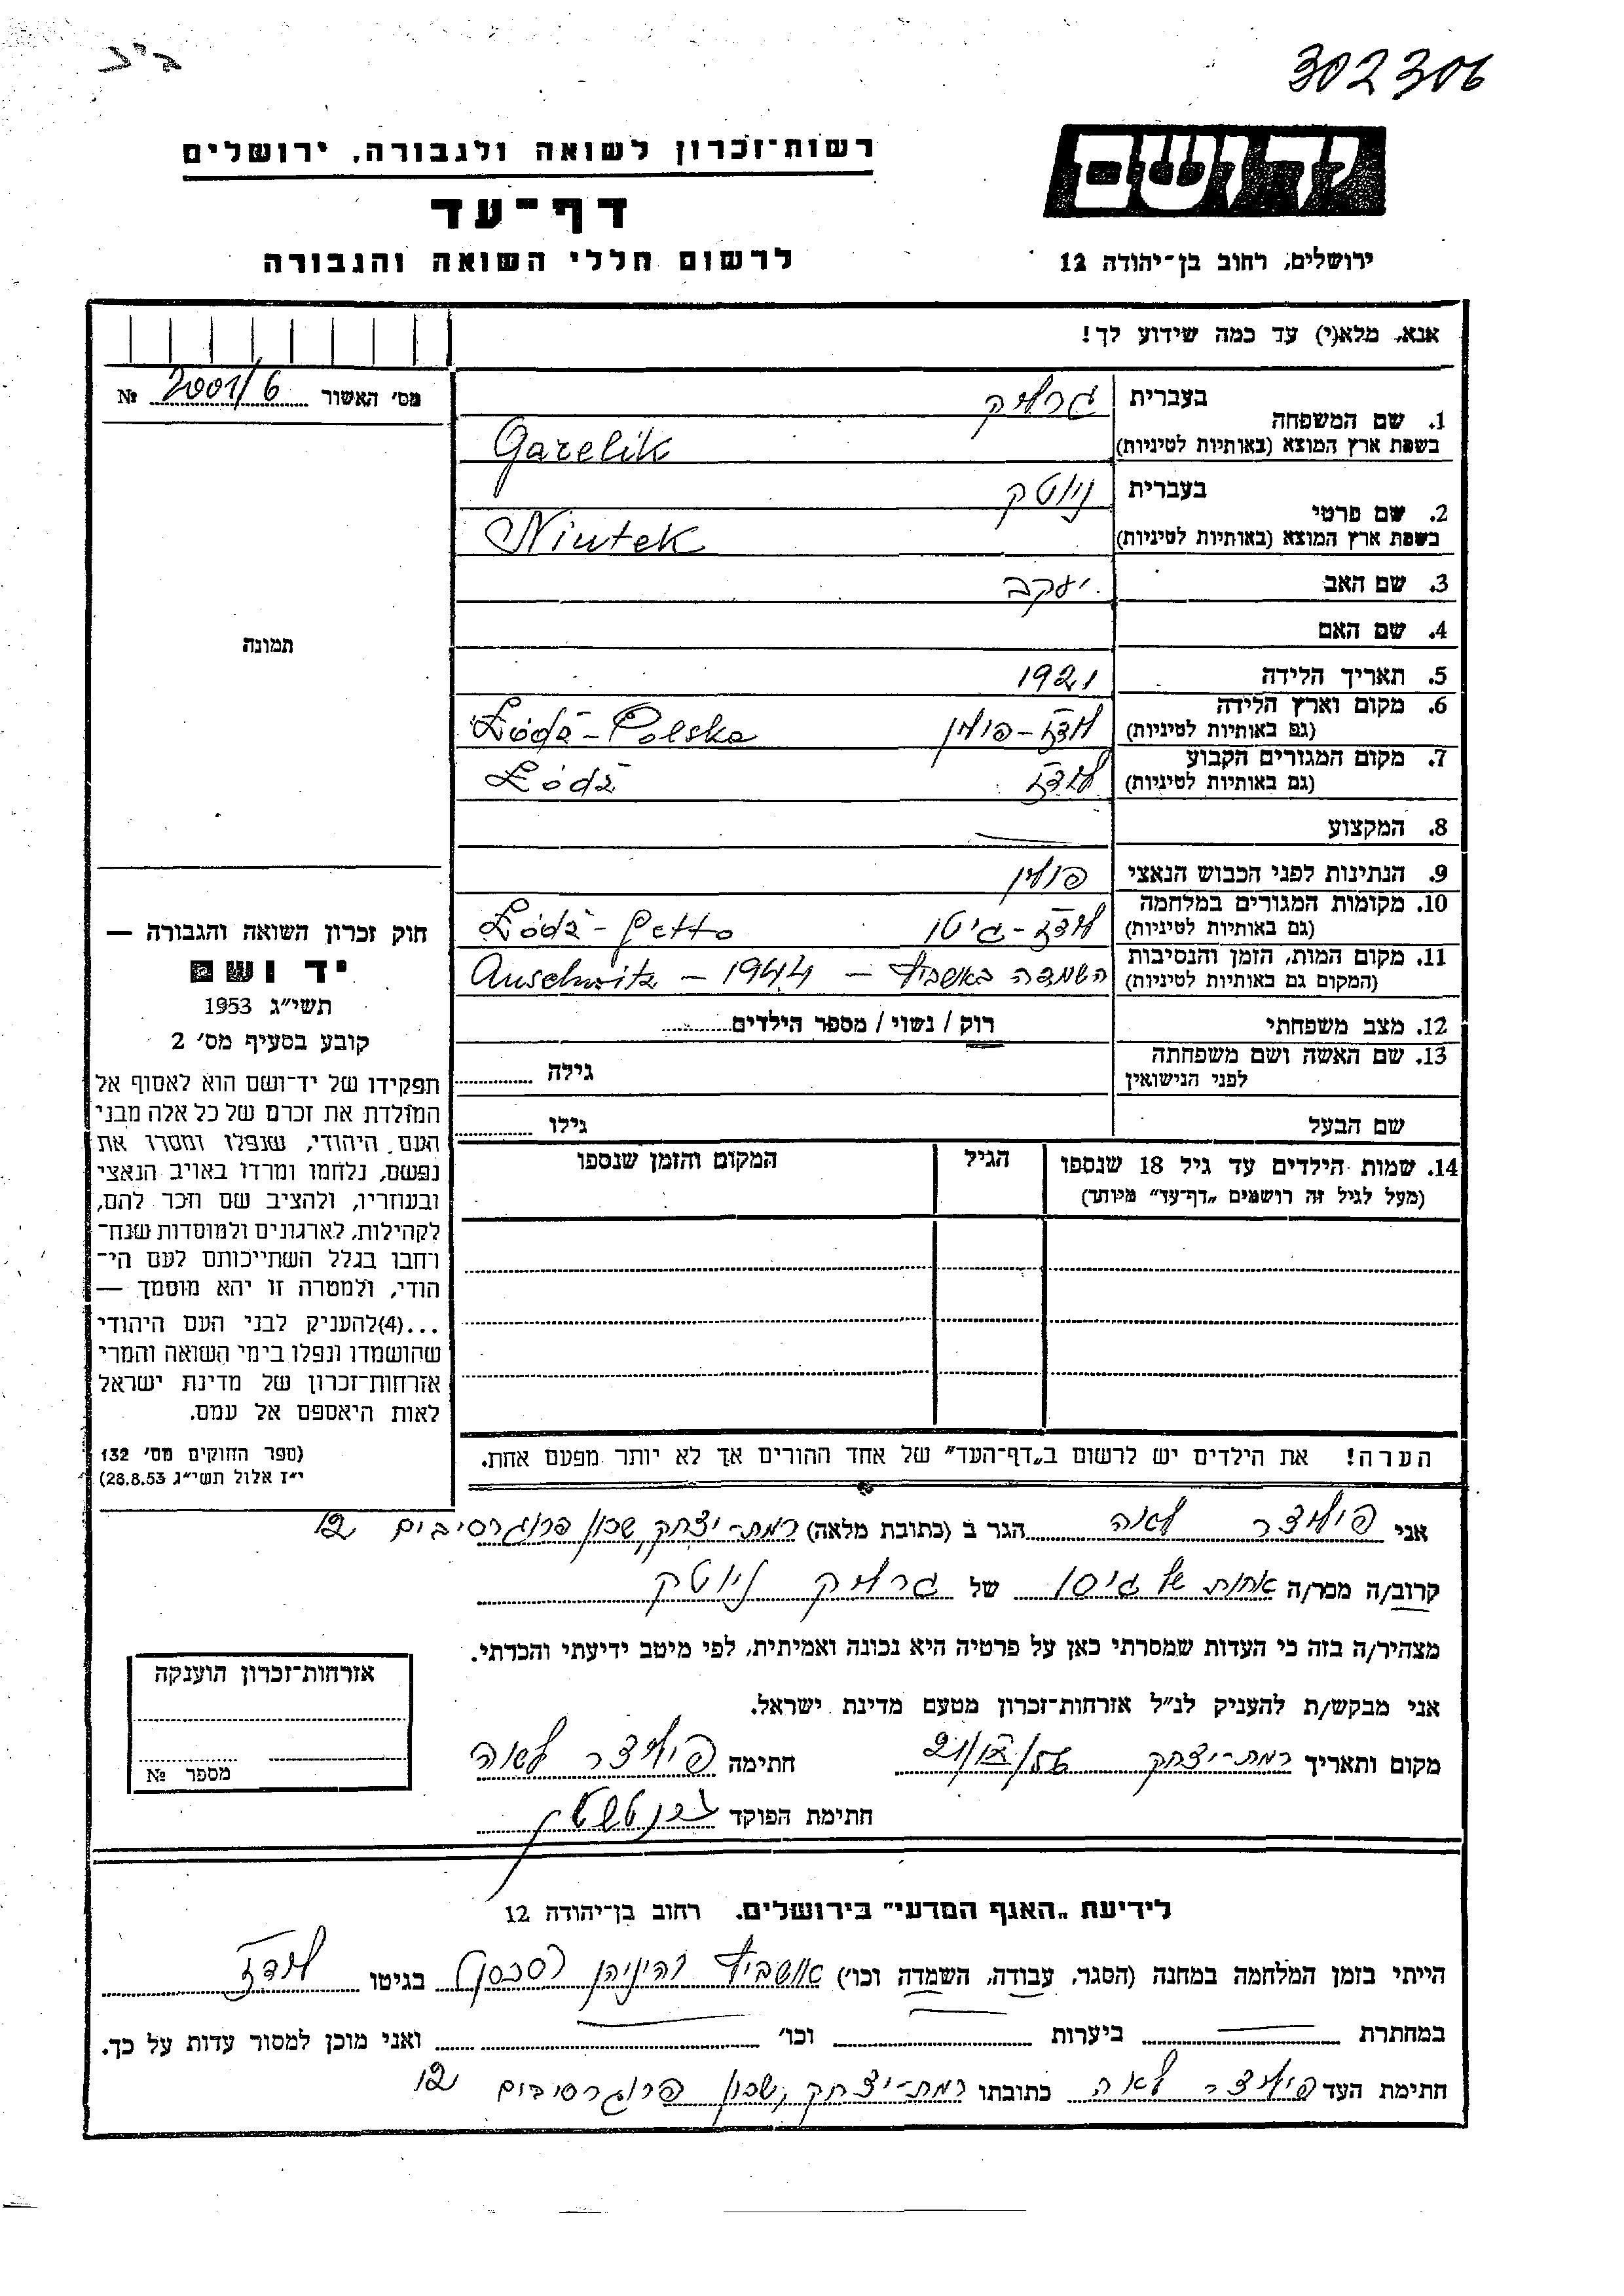 302306
רשות־זכרון לשואה ולגבורה, ירושלים
יד ושם
דף־עד
לרשום חללי השואה והגבורה
ירושלים, רחוב בן־יהודה 12
אנא, מלא(י) עד כמה שידוע לך!
מס' האשור 2001/6 №
1. שם המשפחה
בעברית גרליק
בשפת ארץ המוצא (באותיות לטיניות) Garelik
2. שם פרטי
בעברית ניוטק
בשפת ארץ המוצא (באותיות לטיניות) Niutek
3. שם האב יעקב
4. שם האם
תמונה
5. תאריך הלידה 1921
6. מקום וארץ הלידה
(גם באותיות לטיניות) לודז - פולין Łódź - Polska
7. מקום המגורים הקבוע
(גם באותיות לטיניות) לודז Łódź
8. המקצוע —
9. הנתינות לפני הכבוש הנאצי פולין
10. מקומות המגורים במלחמה
(גם באותיות לטיניות) לודז - גיטו Łódź - Getto
11. מקום המות, הזמן והנסיבות
(המקום גם באותיות לטיניות) השמדה באושביץ — 1944 — Auschwitz
12. מצב משפחתי רווק / נשוי / מספר הילדים
13. שם האשה ושם משפחתה
לפני הנישואין גילה
שם הבעל גילו
14. שמות הילדים עד גיל 18 שנספו
(מעל לגיל זה רושמים „דף־עד" מיוחד)
הגיל
המקום והזמן שנספו
חוק זכרון השואה והגבורה —
יד ושם
תשי"ג 1953
קובע בסעיף מס' 2
תפקידו של יד־ושם הוא לאסוף אל
המולדת את זכרם של כל אלה מבני
העם היהודי, שנפלו ומסרו את
נפשם, נלחמו ומרדו באויב הנאצי
ובעוזריו, ולהציב שם וזכר להם,
לקהילות, לארגונים ולמוסדות שנח־
רחבו בגלל השתייכותם לעם הי־
הודי, ולמטרה זו יהא מוסמך —
...(4)להעניק לבני העם היהודי
שהושמדו ונפלו בימי השואה והמרי
אזרחות־זכרון של מדינת ישראל
לאות היאספם אל עמם.
(ספר החוקים מס' 132
י"ז אלול תשי"ג 28.8.53)
הערה! את הילדים יש לרשום ב„דף־העד" של אחד ההורים אך לא יותר מפעם אחת.
אני פוליצר לאה הגר ב (כתובת מלאה) רמת-יצחק, שכון פרוגרסיבים 12
קרוב/ה מכר/ה אחות של גיסו של גרליק ניוטק
מצהיר/ה בזה כי העדות שמסרתי כאן על פרטיה היא נכונה ואמיתית, לפי מיטב ידיעתי והכרתי.
אני מבקש/ת להעניק לנ"ל אזרחות־זכרון מטעם מדינת ישראל.
מקום ותאריך רמת-יצחק חתימה פוליצר לאה
חתימת הפוקד
אזרחות־זכרון הוענקה
מספר №
לידיעת „האגף המדעי" בירושלים. רחוב בן־יהודה 12
הייתי בזמן המלחמה במחנה (הסגר, עבודה, השמדה וכו') אושביץ בגיטו לודז
במחתרת — ביערות — וכו' — ואני מוכן למסור עדות על כך.
חתימת העד פוליצר לאה כתובתו רמת-יצחק, שכון פרוגרסיבים 12